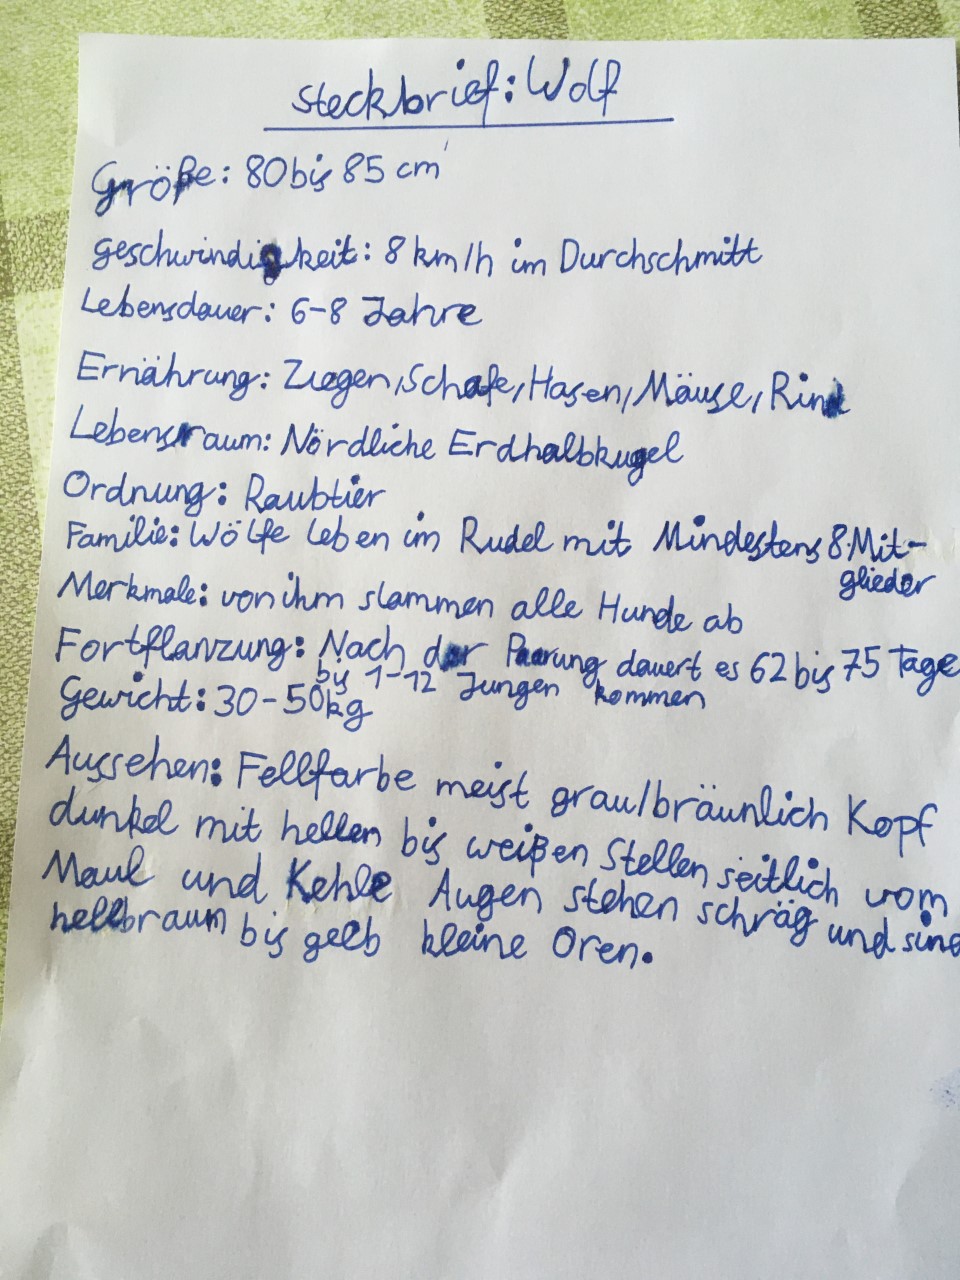 Steckbrief: Wolf
Größe: 80 bis 85 cm
geschwindigkeit: 8 km/h im Durchschmitt
Lebensdauer: 6-8 Jahre
Ernährung: Ziegen, Schafe, Hasen, Mäuse, Rind
Lebensraum: Nördliche Erdhalbkugel
Ordnung: Raubtier
Familie: Wölfe leben im Rudel mit Mindestens 8 Mit-
glieder
Merkmale: von ihm slammen alle Hunde ab
Fortflanzung: Nach der Paarung dauert es 62 bis 75 Tage
bis 1-12 Jungen kommen
Gewicht: 30-50kg
Aussehen: Fellfarbe meist grau/bräunlich Kopf
dunkel mit hellen bis weißen Stellen seitlich vom
Maul und Kehle Augen stehen schräg und sind
hellbraum bis gelb kleine Oren.